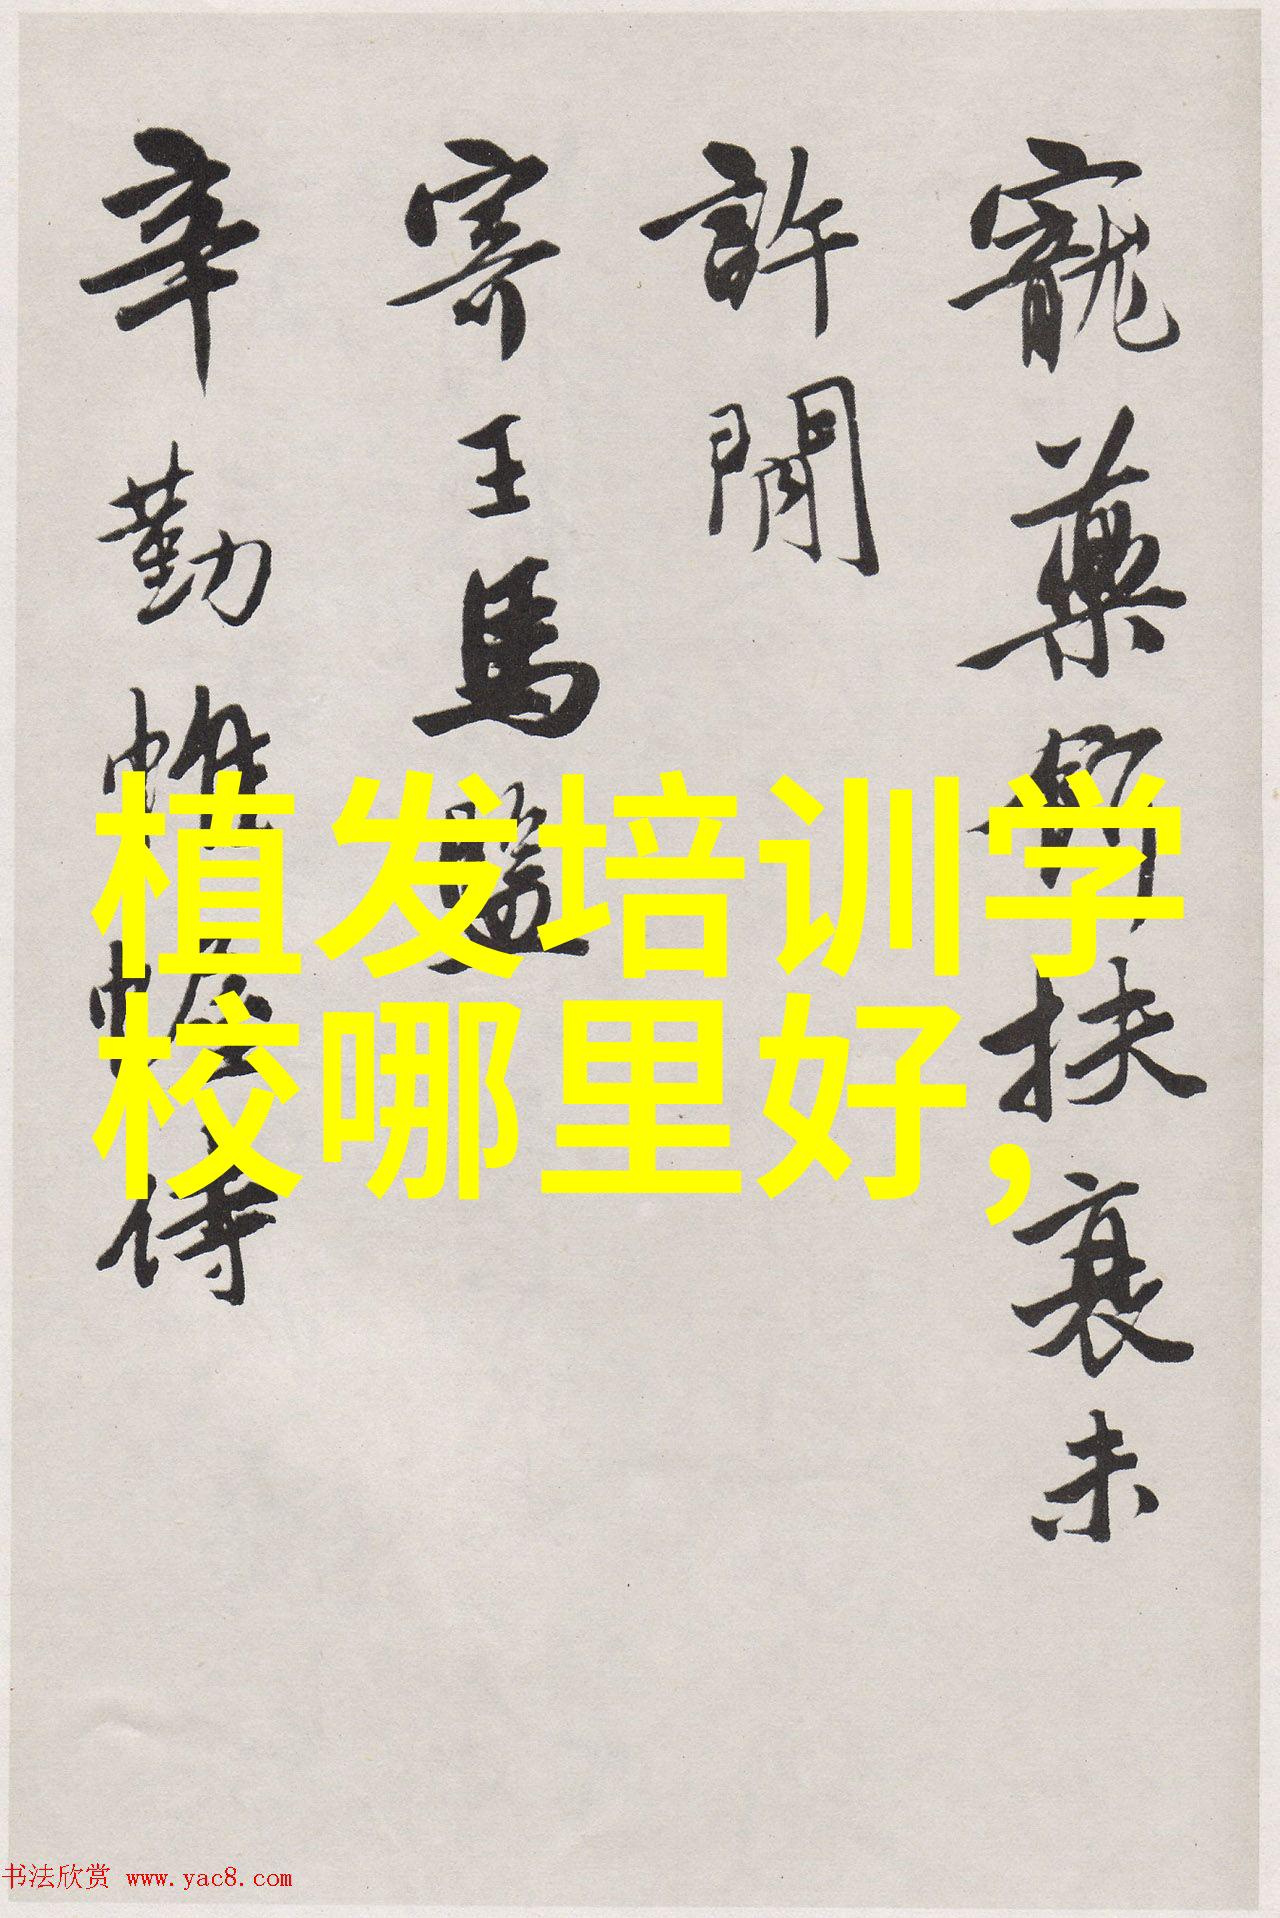 寵藥節扶衰未
許閒
寄王馬邃
辛勤帷幄侍
植发培训学
校哪里好，
书法欣赏 www.yac8.com